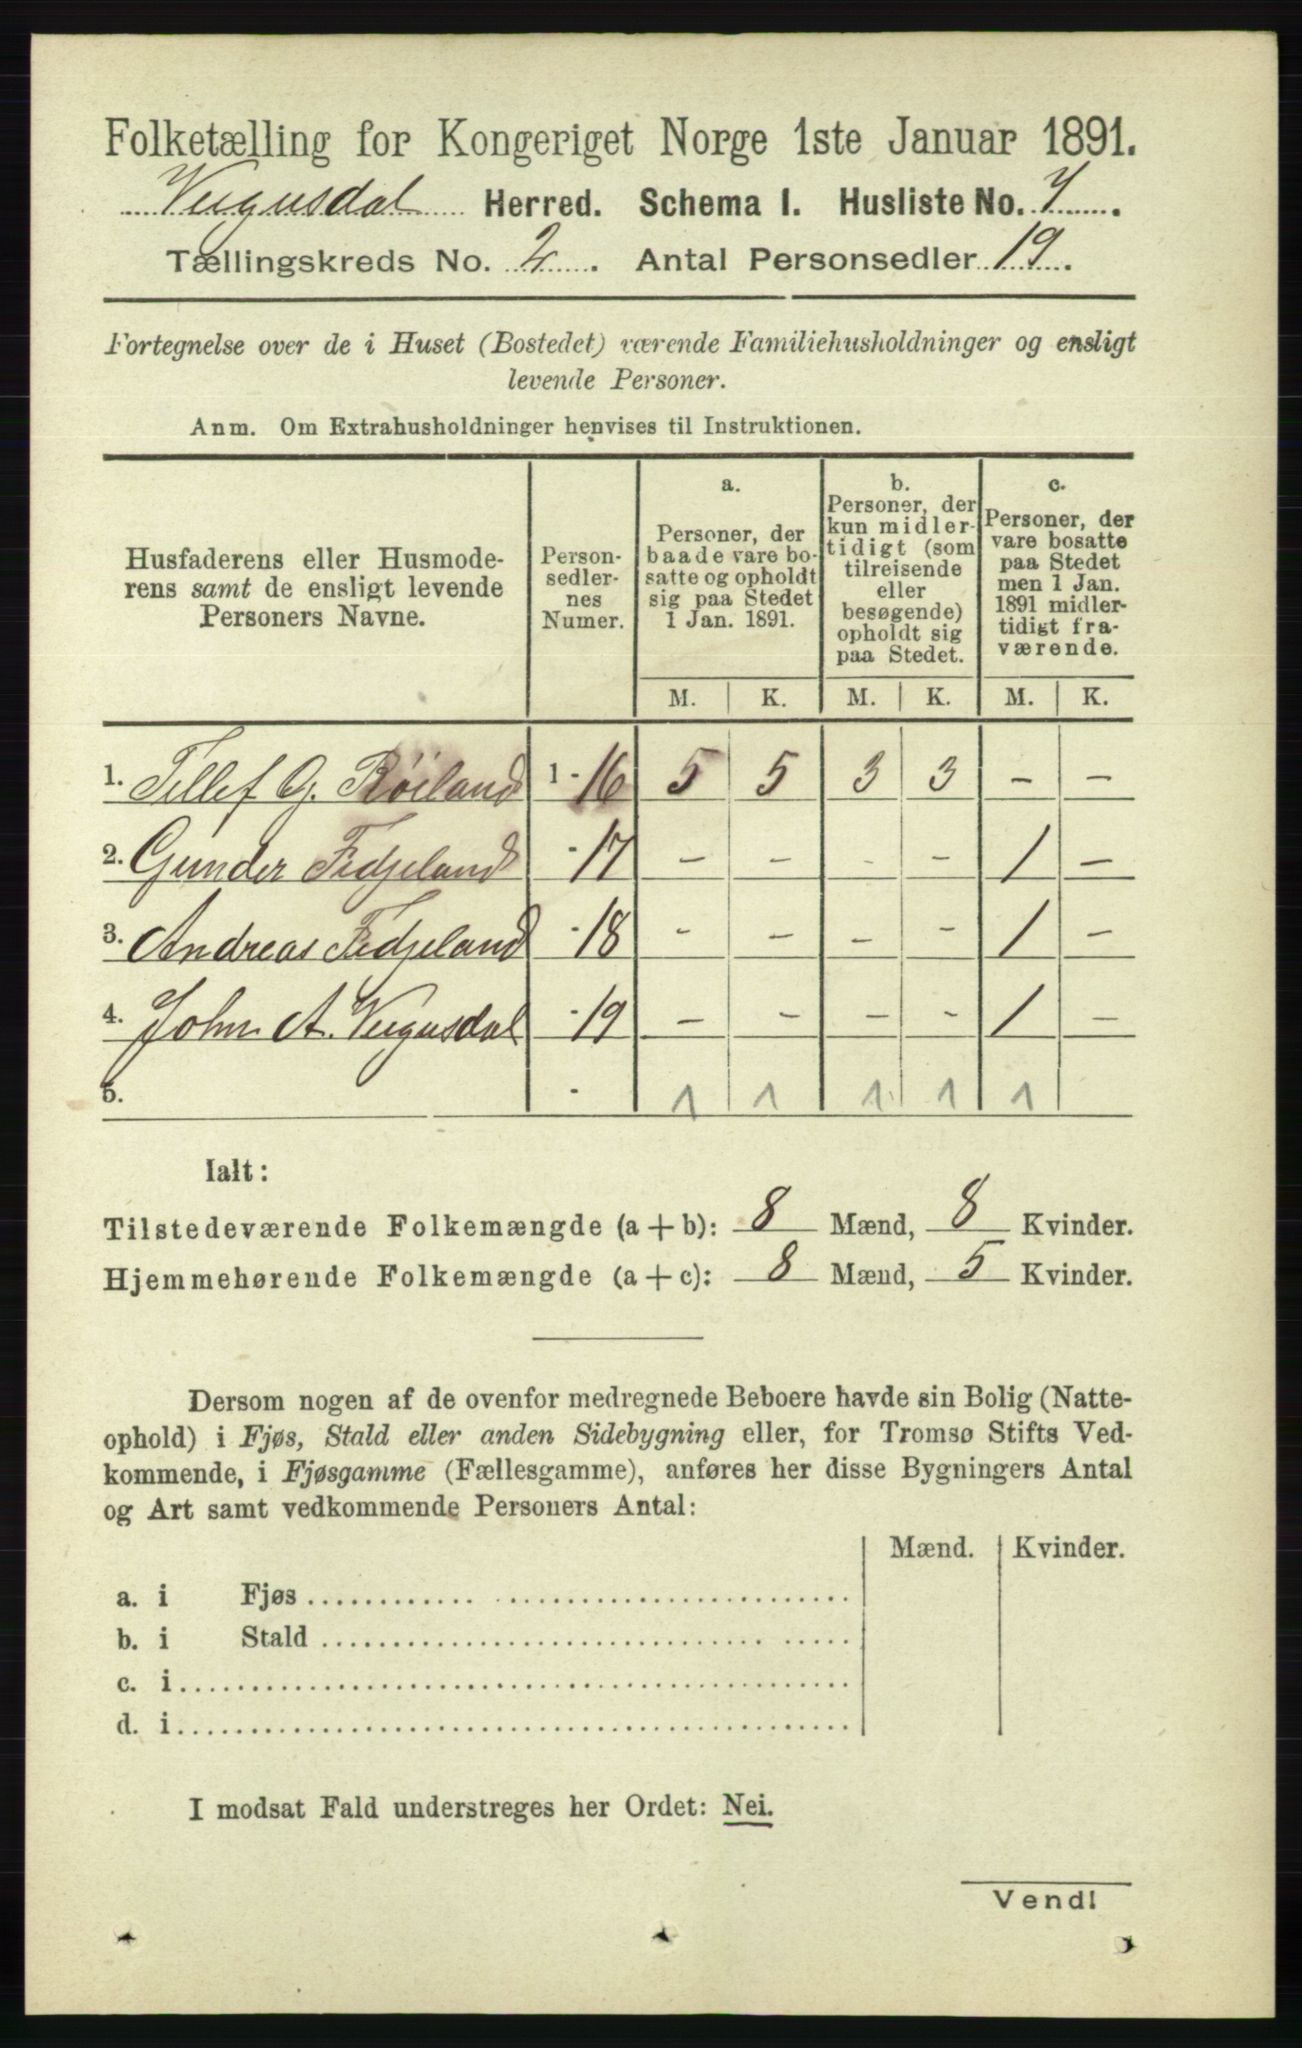 Folketælling for Kongeriget Norge 1ste Januar 1891.
Vegusdal Herred. Schema I. Husliste No. 7.
Tællingskreds No. 2. Antal Personsedler 19.
Fortegnelse over de i Huset (Bostedet) værende Familiehusholdninger og ensligt
levende Personer.
Anm. Om Extrahusholdninger henvises til Instruktionen.
Husfaderens eller Husmode-
rens samt de ensligt levende
Personers Navne.
Person-
sedler-
nes
Numer.
a.
Personer, der
baade vare bo-
satte og opholdt
sig paa Stedet
1 Jan. 1891.
b.
Personer, der
kun midler-
tidigt (som
tilreisende
eller
besøgende)
opholdt sig
paa Stedet.
c.
Personer, der
vare bosatte
paa Stedet
men 1 Jan.
1891 midler-
tidigt fra-
værende.
M. K. M. K. M. K.
1. Tellef G. Røiland 1 - 16 5 5 3 3 - -
2. Gunder Fidjeland - 17 - - - - 1 -
3. Andreas Fidjeland - 18 - - - - 1 -
4. John A. Vegusdal - 19 - - - - 1 -
5. - 1 1 1 1 1
Ialt:
Tilstedeværende Folkemængde (a + b): 8 Mænd, 8 Kvinder.
Hjemmehørende Folkemængde (a + c): 8 Mænd, 5 Kvinder.
Dersom nogen af de ovenfor medregnede Beboere havde sin Bolig (Natte-
ophold) i Fjøs, Stald eller anden Sidebygning eller, for Tromsø Stifts Ved-
kommende, i Fjøsgamme (Fællesgamme), anføres her disse Bygningers Antal
og Art samt vedkommende Personers Antal:
Mænd. Kvinder.
a. i Fjøs
b. i Stald
c. i
d. i
I modsat Fald understreges her Ordet: Nei.
Vend!